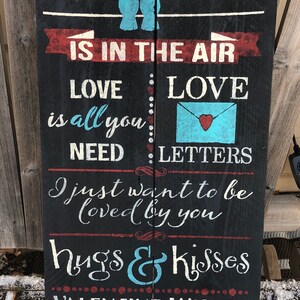 IS IN THE AIR
LOVE
is all you
NEED
LOVE
LETTERS
I just want to be
loved by you
hugs & kisses